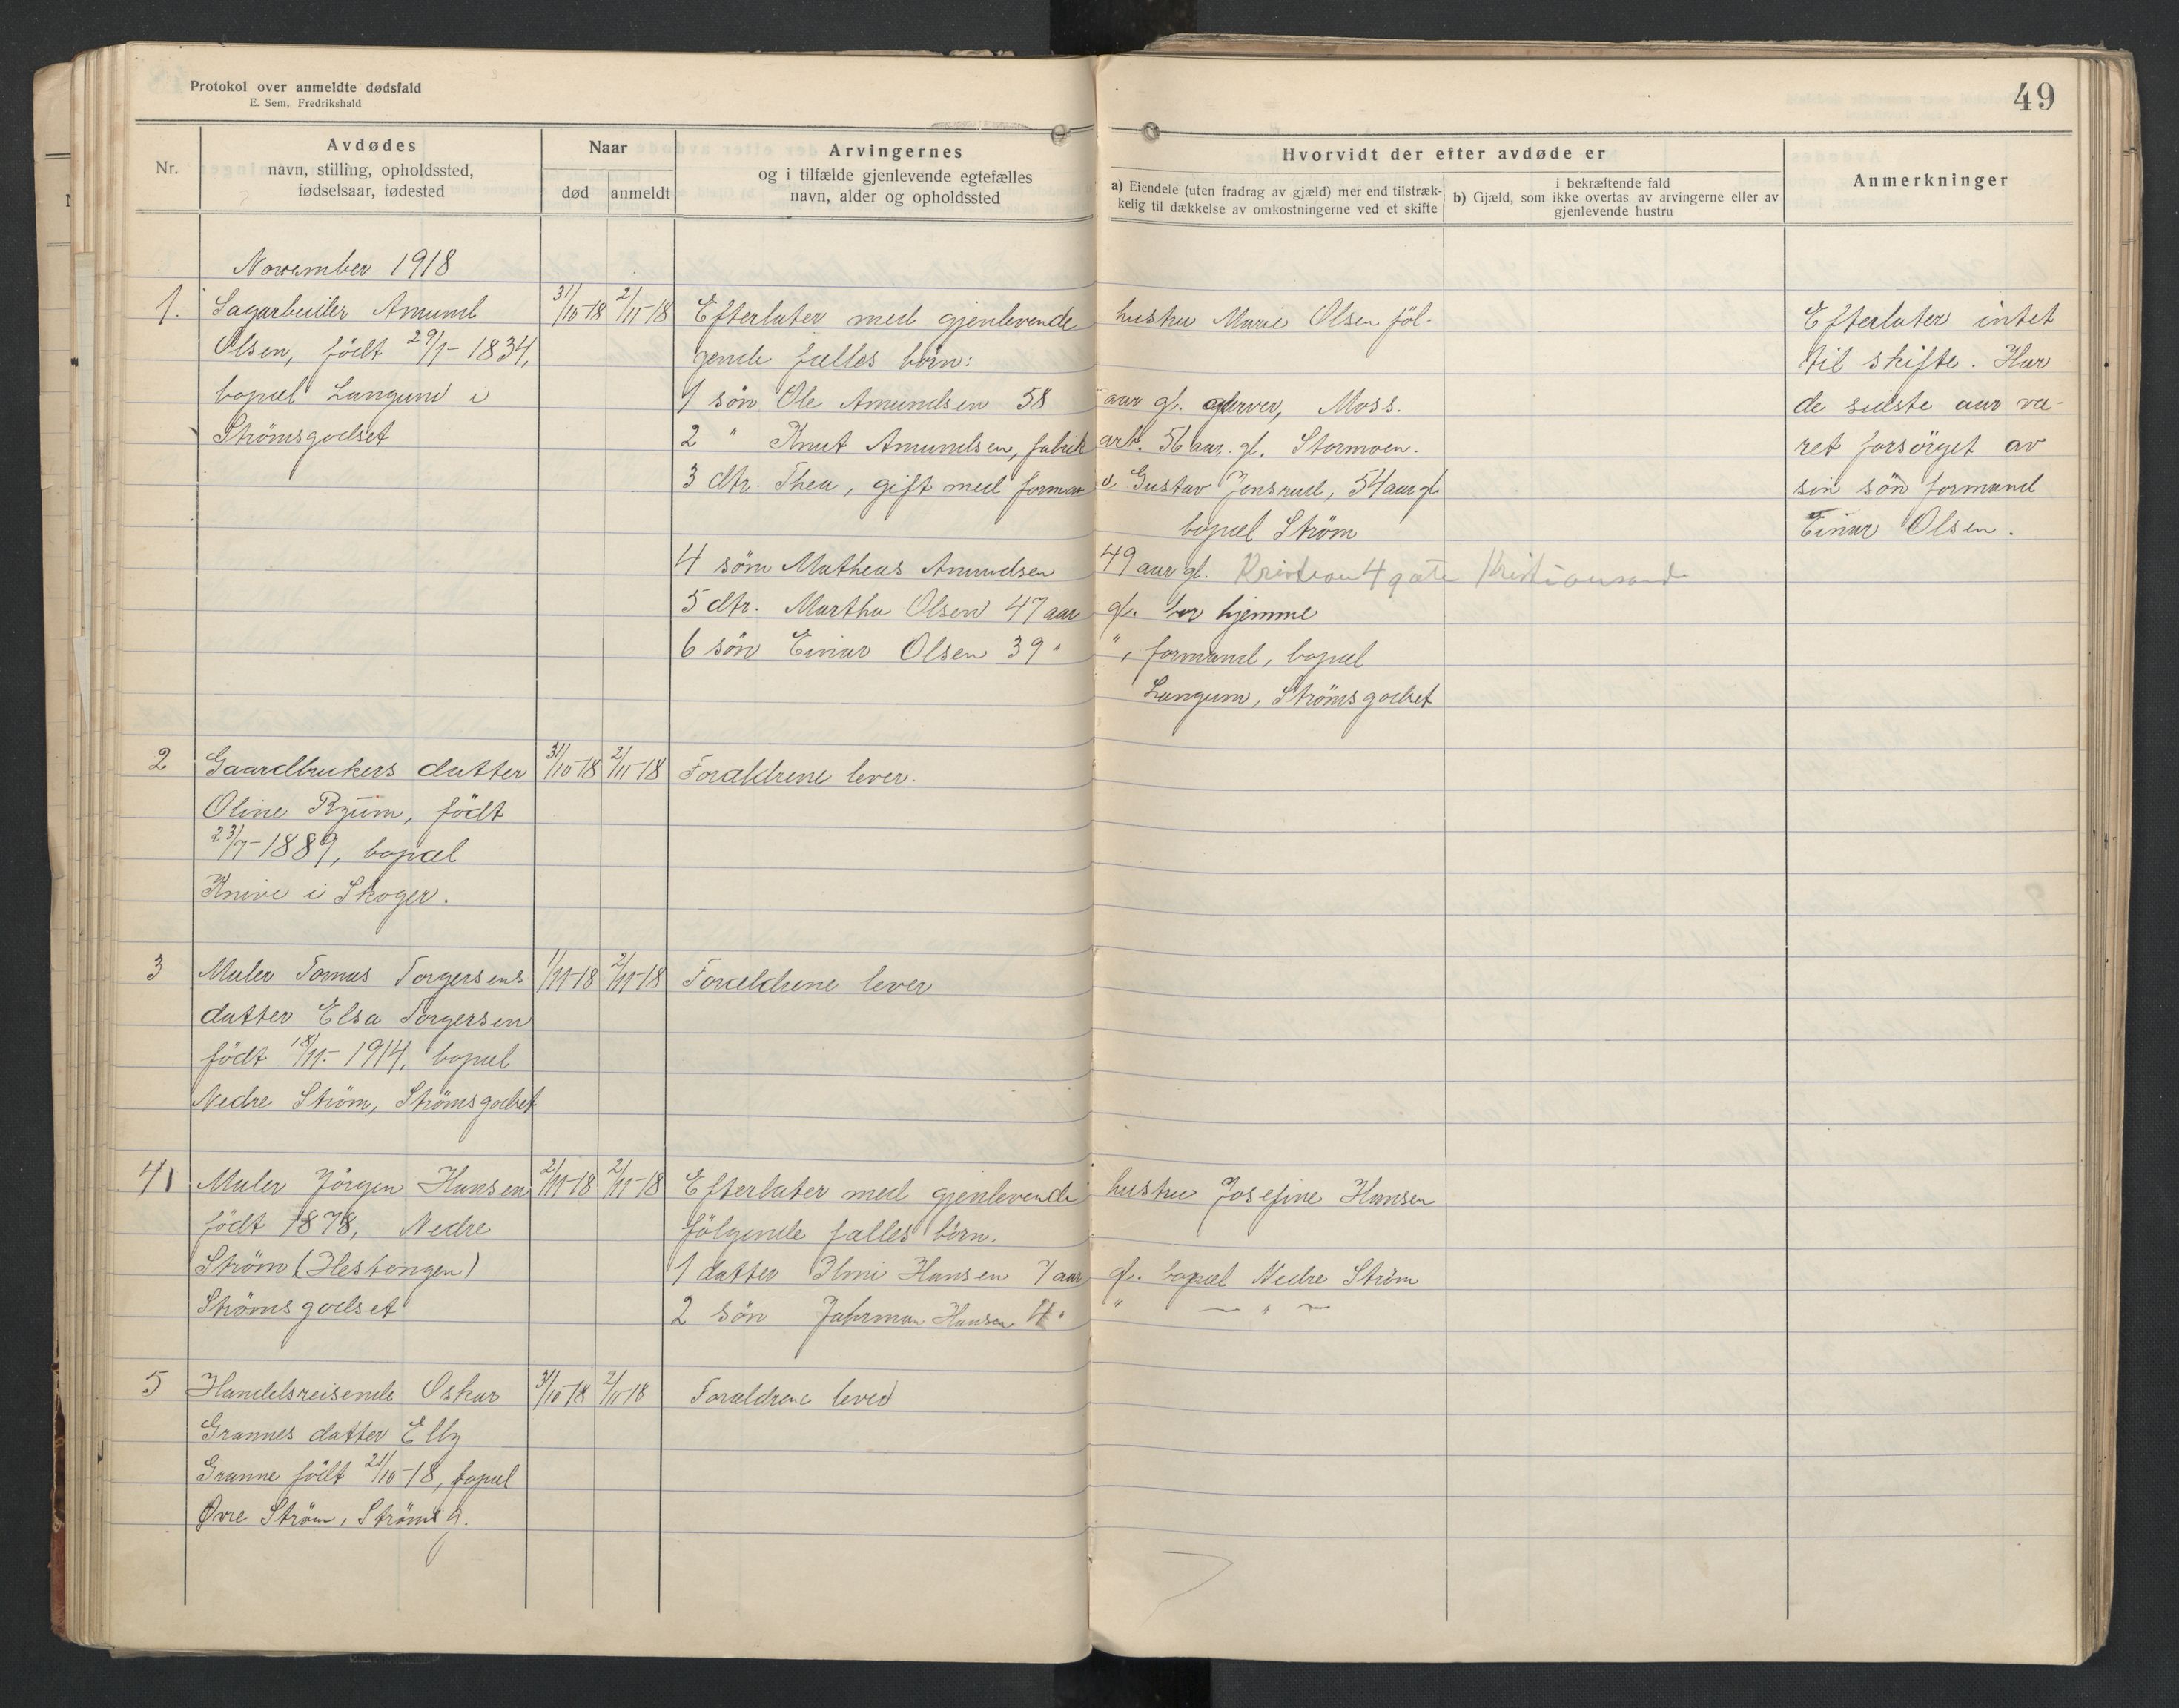 Protokol over anmeldte dødsfald
E. Sem, Fredrikshald
49
Nr.
Avdødes
navn, stilling, opholdssted,
fødselsaar, fødested
Naar
død
anmeldt
Arvingernes
og i tilfælde gjenlevende egtefælles
navn, alder og opholdssted
Hvorvidt der efter avdøde er
a) Eiendele (uten fradrag av gjæld) mer end tilstræk-
kelig til dækkelse av omkostningerne ved et skifte
i bekræftende fald
b) Gjæld, som ikke overtas av arvingerne eller av
gjenlevende hustru
Anmerkninger
November 1918
1. Sagarbeider Amund 31/10-18 2/11-18 Efterlater med gjenlevende hustru Marie Olsen föl- Efterlater intet
Olsen, födt 29/1-1834, gende fælles börn: til skifte. Har
bopæl Langum i 1 sön Ole Amundsen 58 aar gl. garver, Moss. de sidste aar væ-
Strömsgodset 2 " Knut Amundsen, fabrik arb. 56 aar. gl. Stormoen. ret forsörget av
3 dtr. Thea, gift med forman d, Gustav Jensrud, 54 aar gl. sin sön formand
bopæl Ström Einar Olsen.
4 sön Matheus Amundsen 49 aar gl. Kristian 4 gate Kristiansand
5 dtr. Martha Olsen 47 aar gl. bor hjemme
6 sön Einar Olsen 39 " ", formand, bopæl
Langum, Strömsgodset
2 Gaardbrukers datter 31/10-18 2/11-18 Forældrene lever.
Oline Ryum, födt
23/7-1889, bopæl
Knive i Skoger.
3 Maler Tomas Torgersens 1/11-18 2/11-18 Forældrene lever
datter Elsa Torgersen
födt 18/11-1914, bopæl
Nedre Ström, Strömsgodset
4 Maler Jörgen Hansen 2/11-18 2/11-18 Efterlater med gjenlevende hustru Josefine Hansen
födt 1878, Nedre fölgende fælles börn.
Ström (Hestengen) 1 datter Hansen 7 aar gl. bopæl Nedre Ström
Strömsgodset 2 sön Hansen 4 " " — " —
5 Handelsreisende Oskar 31/10-18 2/11-18 Forældrene lever
Grannes datter Elly
Granne födt 21/10-18, bopæl
Øvre Ström, Ströms g.